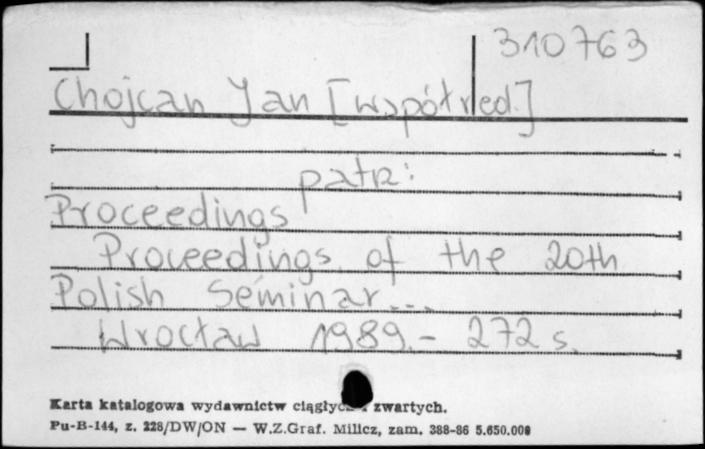 310763
Chojcan Jan [współred.]
patrz:
Proceedings
Proceedings of the 20th
Polish Seminar...
Wrocław 1989.- 272 s.
Karta katalogowa wydawnictw ciągłych i zwartych.
Pu-B-144, z. 228/DW/ON — W.Z.Graf. Milicz, zam. 388-86 5.650.000